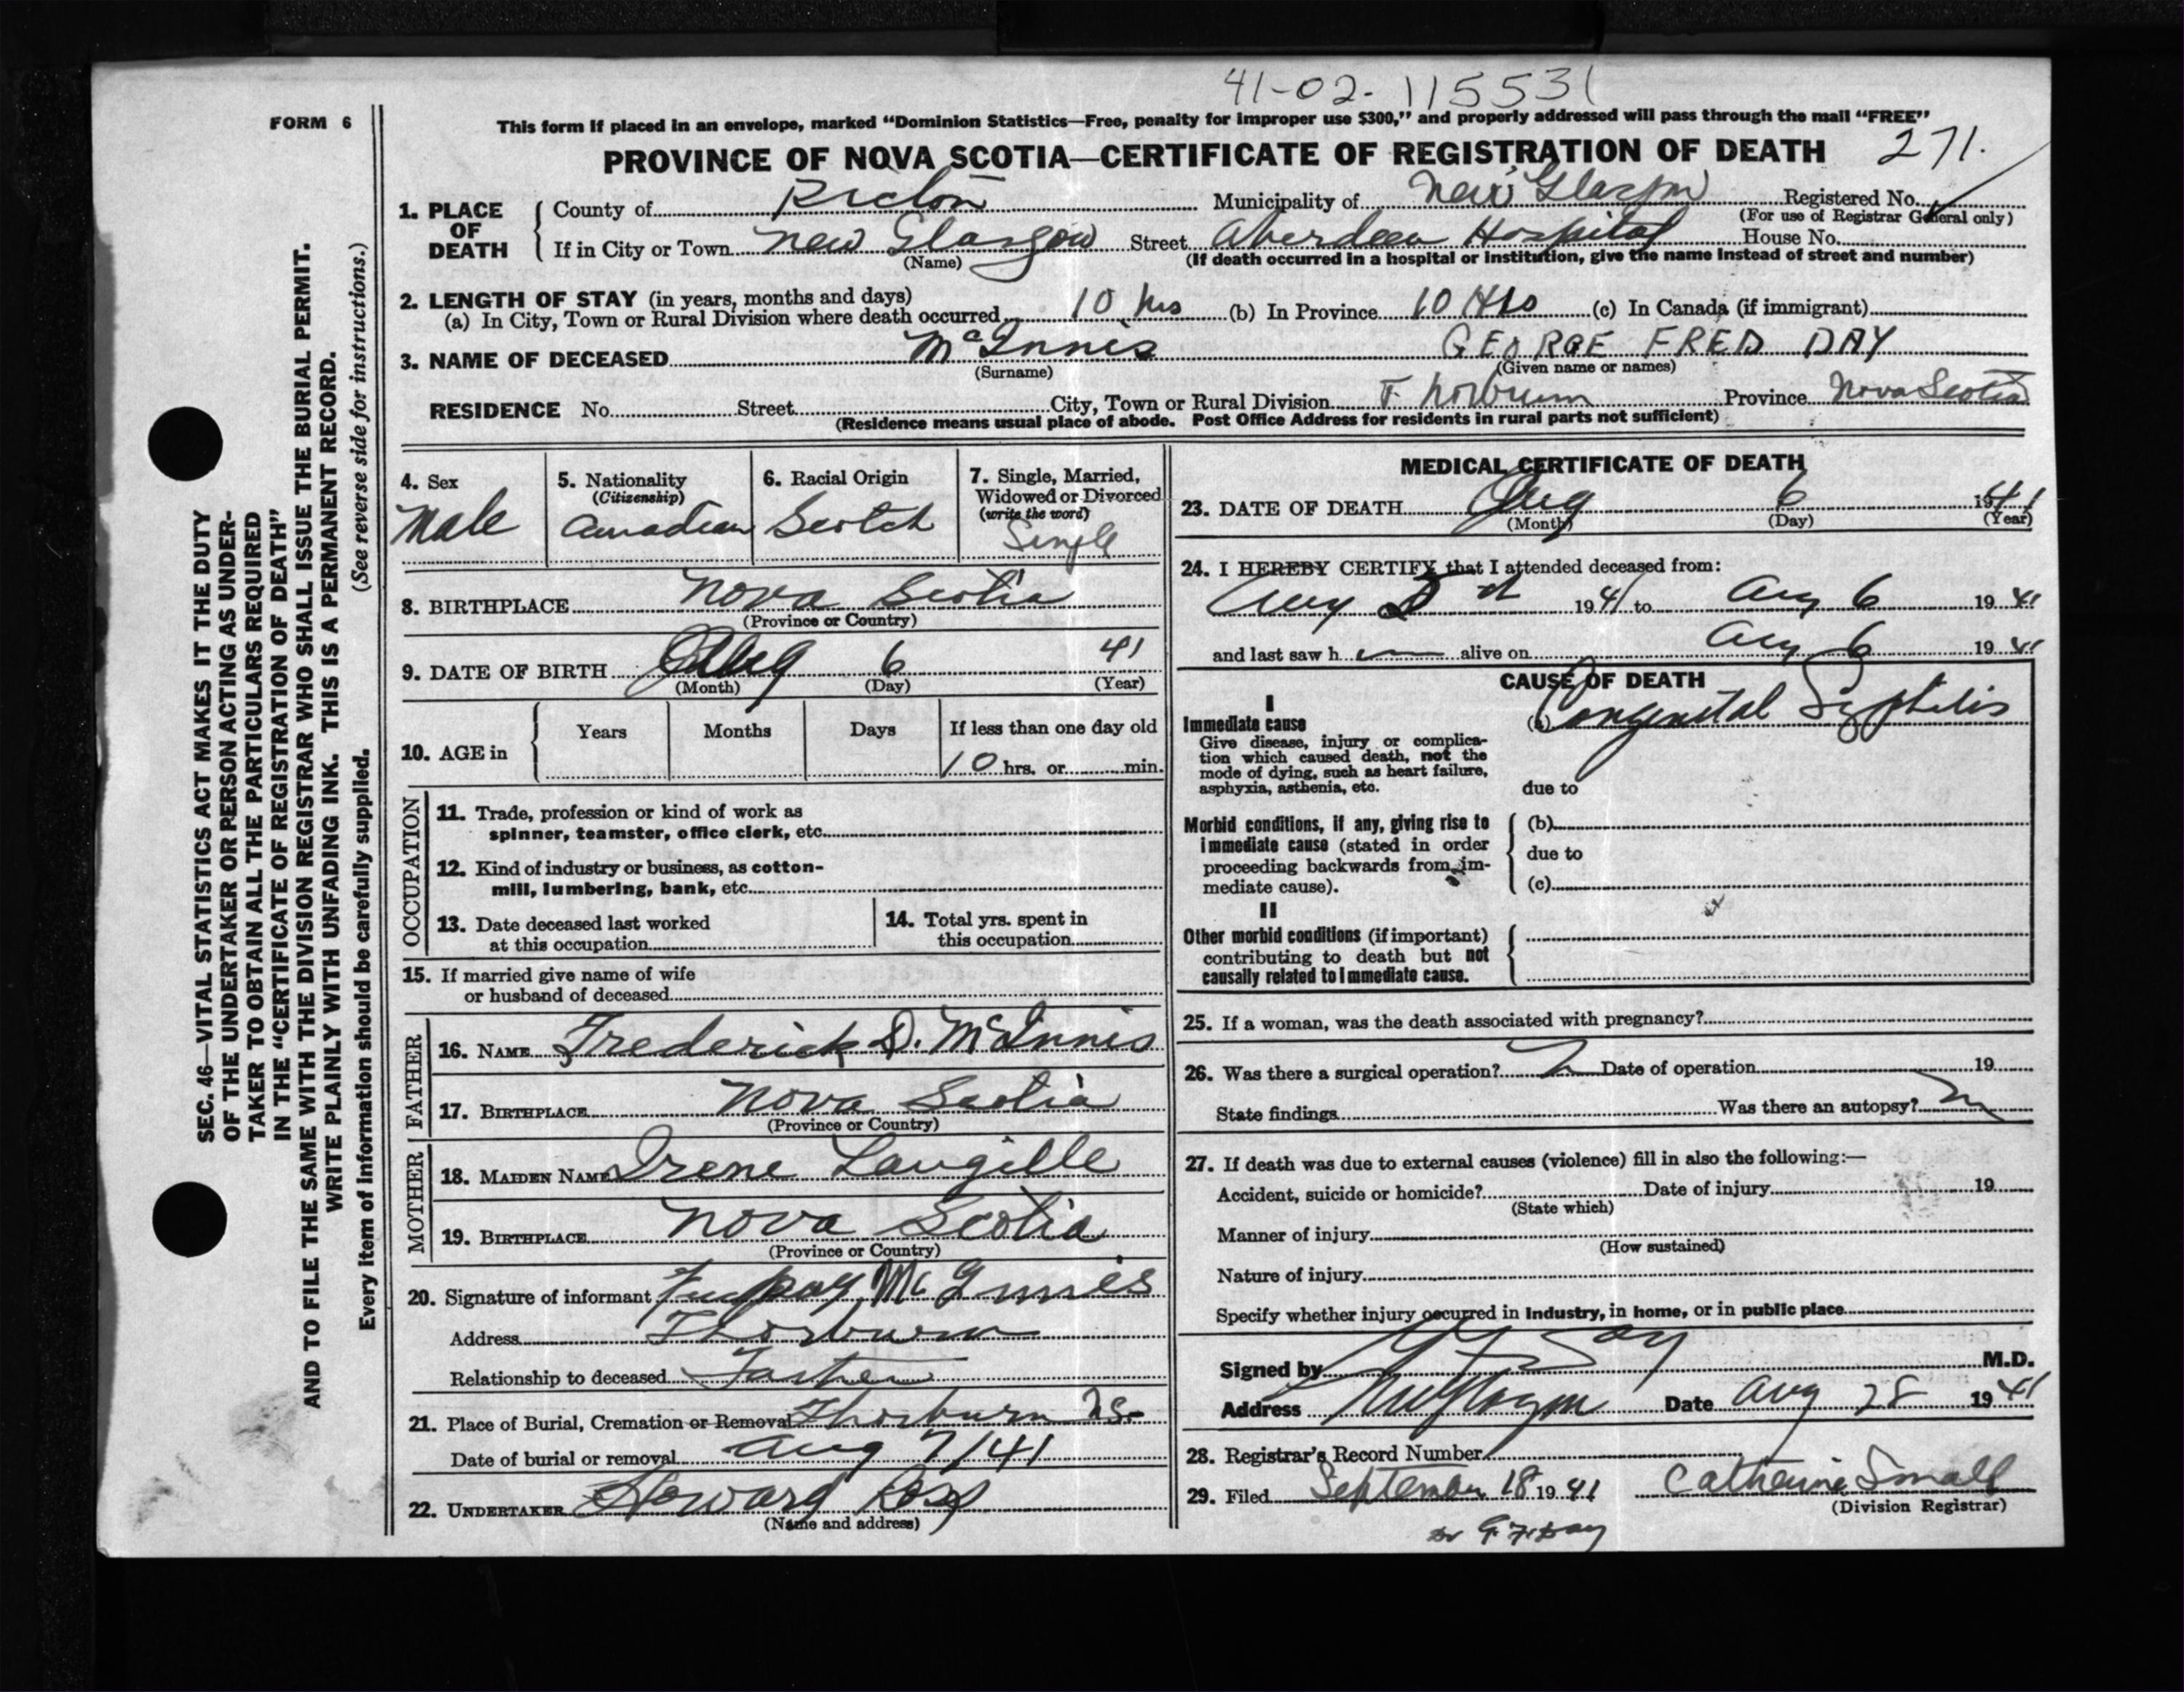 41-02-115531
FORM 6
This form if placed in an envelope, marked “Dominion Statistics—Free, penalty for improper use $300,” and properly addressed will pass through the mail “FREE”
PROVINCE OF NOVA SCOTIA—CERTIFICATE OF REGISTRATION OF DEATH 271.
1. PLACE OF DEATH
County of Pictou Municipality of New Glasgow Registered No.
(For use of Registrar General only)
If in City or Town New Glasgow Street Aberdeen Hospital House No.
(Name) (If death occurred in a hospital or institution, give the name instead of street and number)
2. LENGTH OF STAY (in years, months and days)
(a) In City, Town or Rural Division where death occurred 10 hrs (b) In Province 10 Hrs (c) In Canada (if immigrant)
3. NAME OF DECEASED McInnis GEORGE FRED DAY
(Surname) (Given name or names)
RESIDENCE No. Street City, Town or Rural Division Thorburn Province Nova Scotia
(Residence means usual place of abode. Post Office Address for residents in rural parts not sufficient)
SEC. 46—VITAL STATISTICS ACT MAKES IT THE DUTY
OF THE UNDERTAKER OR PERSON ACTING AS UNDER-
TAKER TO OBTAIN ALL THE PARTICULARS REQUIRED
IN THE “CERTIFICATE OF REGISTRATION OF DEATH”
AND TO FILE THE SAME WITH THE DIVISION REGISTRAR WHO SHALL ISSUE THE BURIAL PERMIT.
WRITE PLAINLY WITH UNFADING INK. THIS IS A PERMANENT RECORD.
Every item of information should be carefully supplied. (See reverse side for instructions.)
4. Sex
Male
5. Nationality
(Citizenship)
Canadian
6. Racial Origin
Scotch
7. Single, Married,
Widowed or Divorced
(write the word)
Single
8. BIRTHPLACE Nova Scotia
(Province or Country)
9. DATE OF BIRTH Aug 6 41
(Month) (Day) (Year)
10. AGE in
Years Months Days If less than one day old
10 hrs. or min.
OCCUPATION
11. Trade, profession or kind of work as
spinner, teamster, office clerk, etc.
12. Kind of industry or business, as cotton-
mill, lumbering, bank, etc.
13. Date deceased last worked
at this occupation
14. Total yrs. spent in
this occupation
15. If married give name of wife
or husband of deceased
FATHER
16. NAME Frederick D. McInnis
17. BIRTHPLACE Nova Scotia
(Province or Country)
MOTHER
18. MAIDEN NAME Irene Langille
19. BIRTHPLACE Nova Scotia
(Province or Country)
20. Signature of informant McInnis
Address Thorburn
Relationship to deceased Father
21. Place of Burial, Cremation or Removal Thorburn NS.
Date of burial or removal Aug 7/41
22. UNDERTAKER Howard Ross
(Name and address)
MEDICAL CERTIFICATE OF DEATH
23. DATE OF DEATH Aug 6 1941
(Month) (Day) (Year)
24. I HEREBY CERTIFY that I attended deceased from:
Aug 1941 to Aug 6 1941
and last saw h alive on Aug 6 1941
CAUSE OF DEATH
I
Immediate cause
Give disease, injury or complica-
tion which caused death, not the
mode of dying, such as heart failure,
asphyxia, asthenia, etc.
(a) Congenital Syphilis
due to
Morbid conditions, if any, giving rise to
immediate cause (stated in order
proceeding backwards from im-
mediate cause).
(b)
due to
(c)
II
Other morbid conditions (if important)
contributing to death but not
causally related to immediate cause.
25. If a woman, was the death associated with pregnancy?
26. Was there a surgical operation? Date of operation 19
State findings Was there an autopsy?
27. If death was due to external causes (violence) fill in also the following:—
Accident, suicide or homicide? Date of injury 19
(State which)
Manner of injury
(How sustained)
Nature of injury
Specify whether injury occurred in Industry, in home, or in public place
Signed by Day M.D.
Address Date Aug 28 1941
28. Registrar's Record Number
29. Filed September 18 1941 Catherine Small
(Division Registrar)
Dr G. F. Day